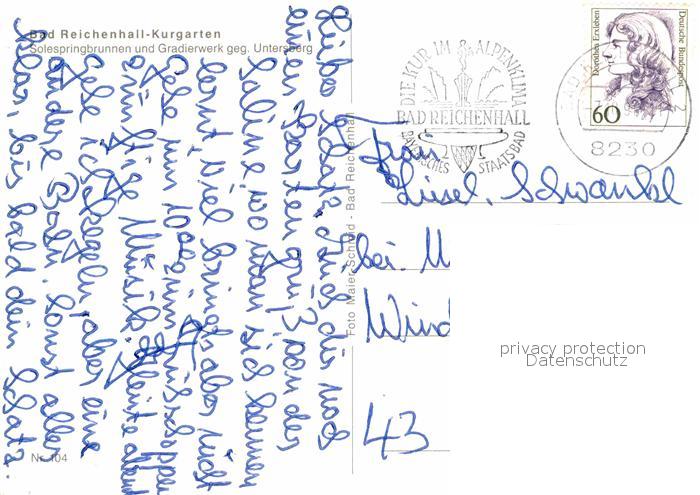 Bad Reichenhall-Kurgarten
Solespringbrunnen und Gradierwerk geg. Untersberg
Liebes Schatz. Muß dir noch
einen Karten gruß von der
Saline wo man sich kennen
lernt, viel bringts aber nicht
Gehe um 10
am Stige Musik. Heinte abend
gehe ich Kegeln, aber eine
andere Bahn. Sonst alles
klar, bis bald dein Schatz.
Nr. 104
Foto Maier Schmid - Bad Reichenhall
DIE KUR IM ALPENKLIMA
BAD REICHENHALL
BAYERISCHES STAATSBAD
BAD
8230
Dorothea Erxleben
Deutsche Bundespost
60
Frau
Lusel. Schwankl
bei. M
Wind
43
privacy protection
Datenschutz